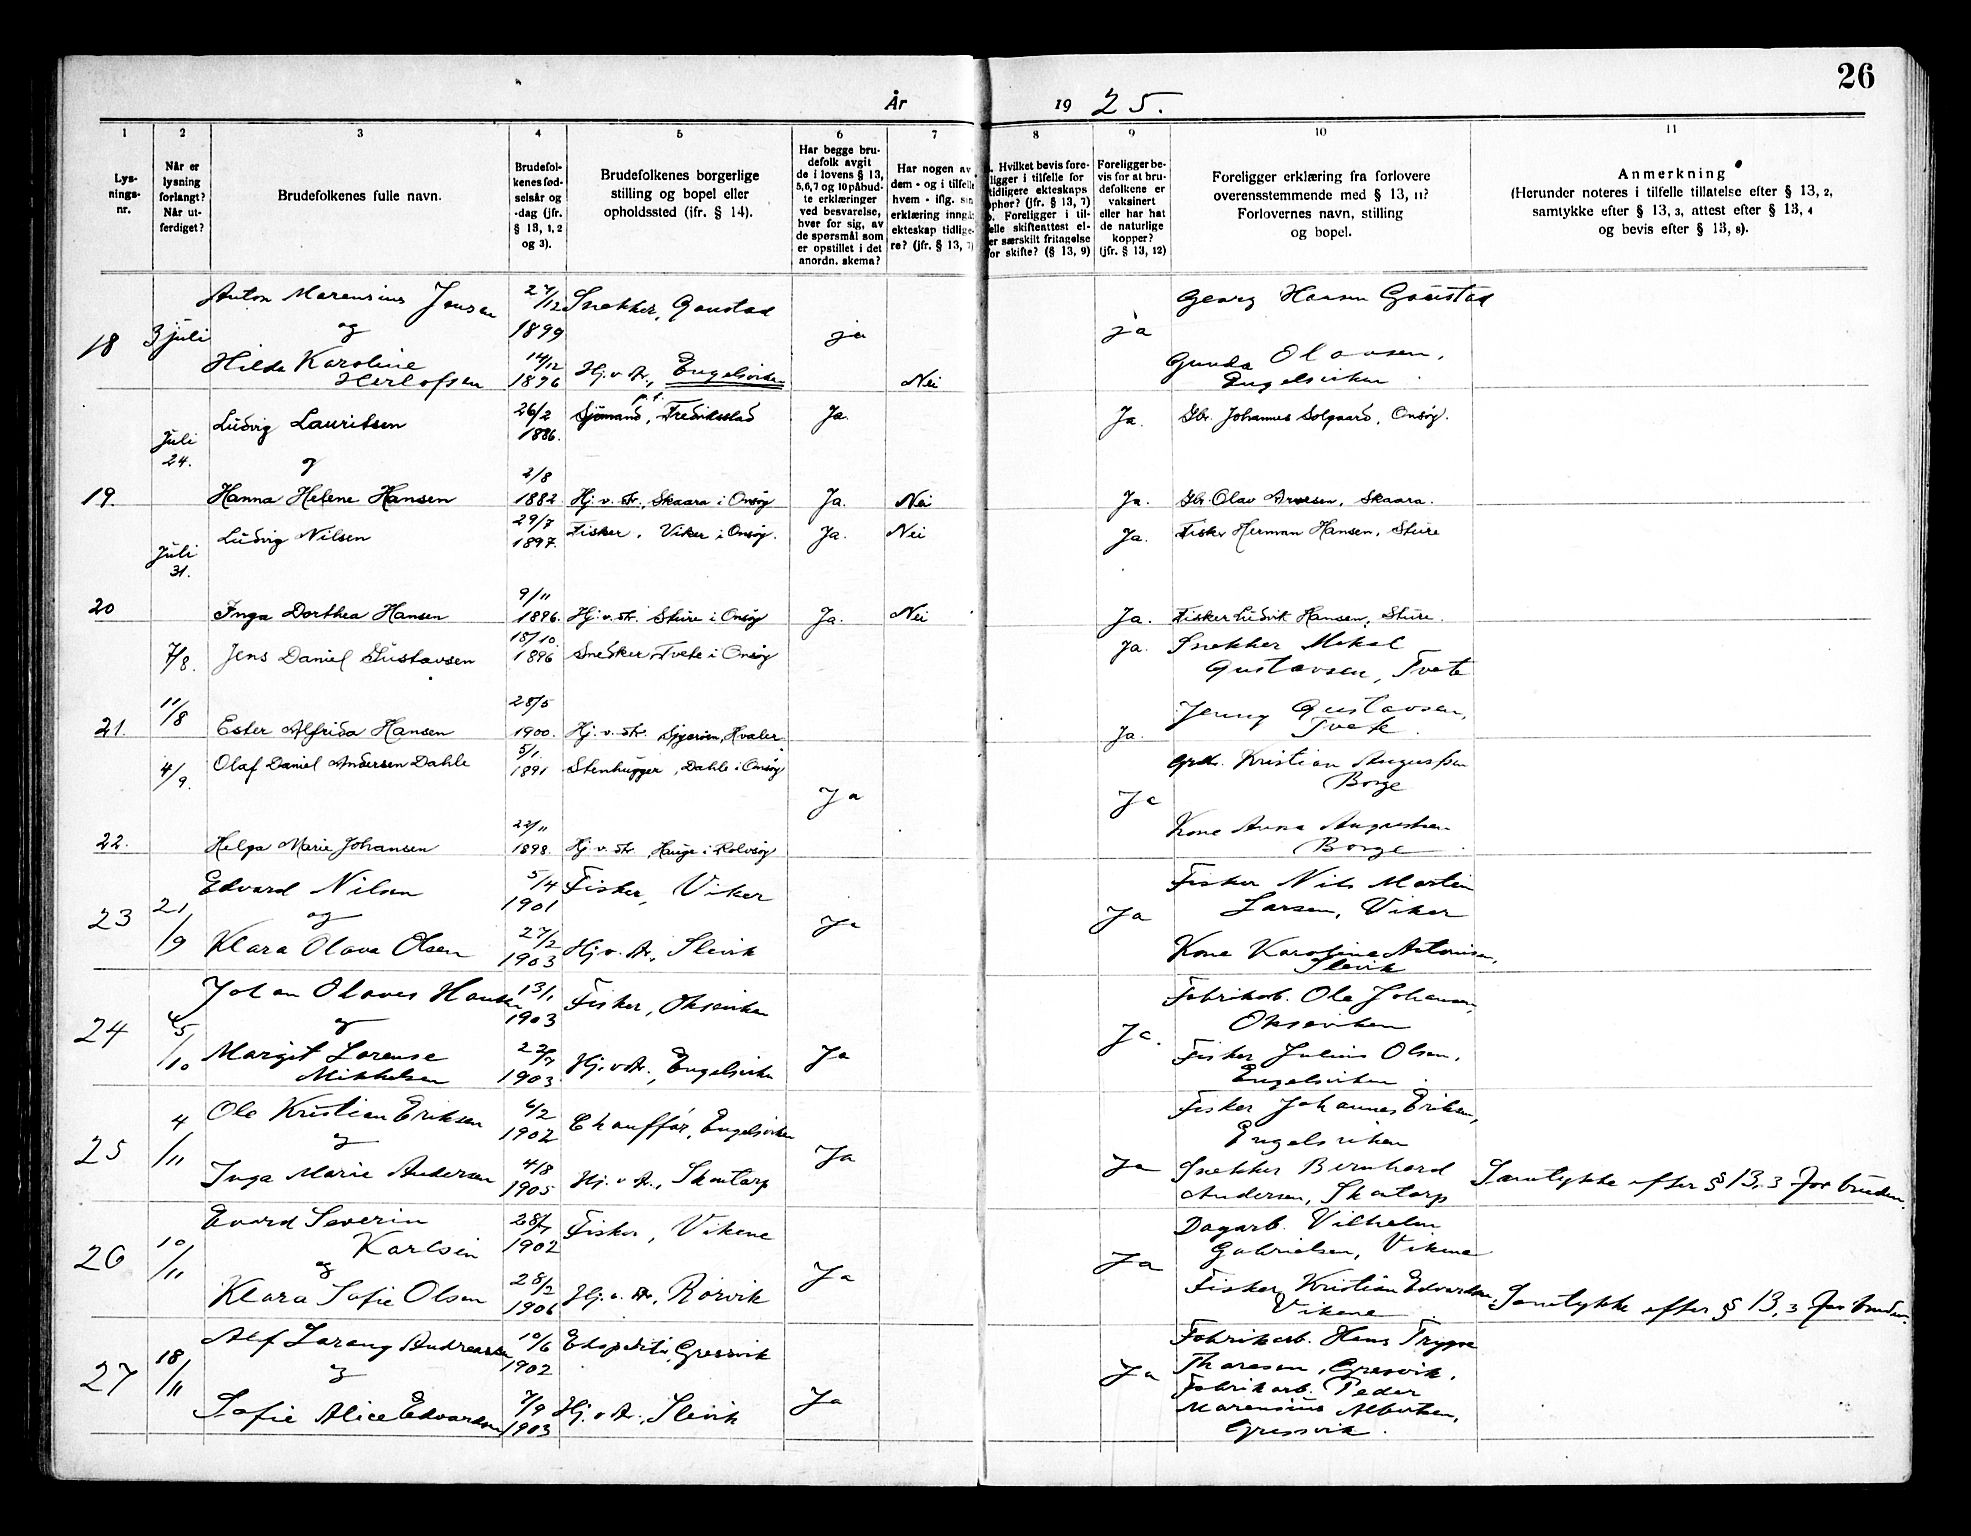 26
År 1925.
1 2 3 4 5 6 7 8 9 10 11
Lys-
nings-
nr.
Når er
lysning
forlangt?
Når ut-
ferdiget?
Brudefolkenes fulle navn.
Brudefol-
kenes fød-
selsår og
-dag (jfr.
§ 13, 1, 2
og 3).
Brudefolkenes borgerlige
stilling og bopel eller
opholdssted (ifr. § 14).
Har begge bru-
defolk avgit
de i lovens § 13,
5,6,7 og 10 påbud-
te erklæringer
ved besvarelse,
hver for sig, av
de spørsmål som
er opstillet i det
anordn. skema?
Har nogen av
dem - og i tilfelle
hvem - iflg. sin
erklæring inngå
ekteskap tidlige-
re? (jfr. § 13, 7)
. Hvilket bevis fore-
ligger i tilfelle for
tidligere ekteskaps
ophør? (jfr. § 13, 7)
b. Foreligger i til-
felle skifteattest el-
er særskilt fritagelse
for skifte? (§ 13, 9)
Foreligger be-
vis for at bru-
defolkene er
vaksinert
eller har hat
de naturlige
kopper?
(jfr. § 13, 12)
Foreligger erklæring fra forlovere
overensstemmende med § 13, 11?
Forlovernes navn, stilling
og bopel.
Anmerkning
(Herunder noteres i tilfelle tillatelse efter § 13, 2,
samtykke efter § 13, 3, attest efter § 13, 4
og bevis efter § 13, 8).
Anton Marensius Jensen 27/12 Snekker, Gaustad Georg Hansen Gaustad
18 3 juli og 1899 ja ja
Hilda Karoline 14/12 Gunda Olavsen,
Herlofsen 1896 Hj. v. str., Engelsviken Nei Engelsviken
Ludvig Lauritsen 26/2 1886. Sjømand, p.t. Fredrikstad Ja. Ja. Gbr. Johannes Solgaard, Onsøy.
Juli
24.
og
2/8
19. Hanna Helene Hansen 1882 Hj. v. str., Skaara i Onsøy Ja. Nei Ja. Gbr. Olav Arnesen, Skaara.
Ludvig Nilsen 29/7 1897. Fisker, Viker i Onsøy. Ja. Nei Ja. Fisker Herman Hansen, Sture
Juli
31.
9/11
20 Inga Dorthea Hansen 1896. Hj. v. str. Sture i Onsøy Ja. Nei Ja. Fisker Ludvik Hansen, Sture.
7/8. Jens Daniel Gustavsen 18/10. 1896 Snedker, Tvete i Onsøy Ja. Snekker Mikal
Gustavsen, Tvete
11/8 28/5 Jenny Gustavsen,
21. Ester Alfrida Hansen 1900. Hj. v. str. Hvaler. Ja. Tvete.
4/9. Olaf Daniel Andersen Dahle 5/1. 1891 Stenhugger, Dahle i Onsøy Kristian Augustsen
Borge
Ja Ja
22/11 Kone Anna Augustsen
22. Helga Marie Johansen 1898. Hj. v. str. Hauge i Rolvsøy Borge.
Edvard Nilsen 5/4 1901 Fisker, Viker Fisker Nils Martin
23 21/9 og Ja Ja Larsen, Viker
Klara Olava Olsen 27/2 1903 Hj. v. str., Slevik Kone Karoline Antonisen,
Slevik
Johan Olaves Hansen 13/1 1903 Fisker, Oksviken Fabrikarb. Ole Johansen,
Oksviken
24 /10 og Ja Ja.
Margit Lorense
Mikkelsen 1903 Hj. v. str., Engelsviken Fisker Julius Olsen,
Engelsviken.
Ole Kristian Eriksen 6/2 1902 Chauffør, Engelsviken Fisker Johannes Eriksen,
Engelsviken
25 4/11 og Ja Ja
Inga Marie Andersen 4/8 1905 Hj. v. str., Skontorp Snekker Bernhard
Andersen, Skontorp Samtykke efter § 13, 3 for bruden.
Evard Severin
Karlsen 28/7 1902 Fisker, Vikene Dagarb. Vilhelm
Gabrielsen, Vikene
26 10/11 og Ja Ja
Klara Sofie Olsen 28/2 1906 Hj. v. str., Rørvik Fisker, Kristian Edvardsen,
Vikene Samtykke efter § 13, 3 for bruden.
Alf Lorang Andreassen 10/6 1902 Ekspeditør, Gressvik Fabrikarb. Hans Trygve
Thoresen, Gresvik.
27 18/11 og Ja Ja
Sofie Alice Edvardsen 7/9 1903 Hj. v. str., Slevik Fabrikarb. Peder
Marensius Albertsen,
Gressvik.